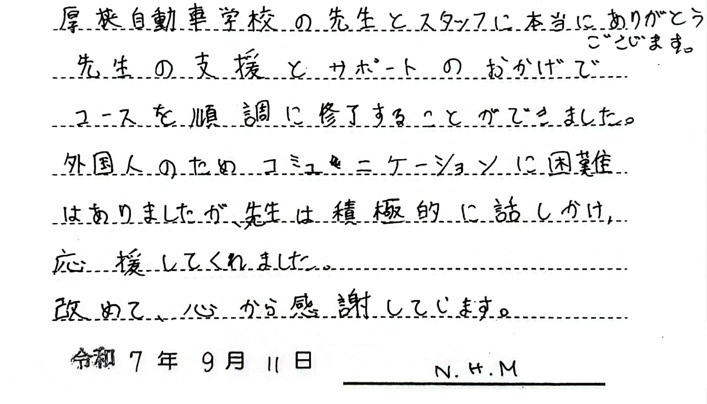 厚狭自動車学校の先生とスタッフに本当にありがとう
ございます。
先生の支援とサポートのおかげで
コースを順調に修了することができました。
外国人のためコミュニケーションに困難
はありましたが、先生は積極的に話しかけ、
応援してくれました。
改めて、心から感謝してじます。
令和7年9月11日
N.H.M